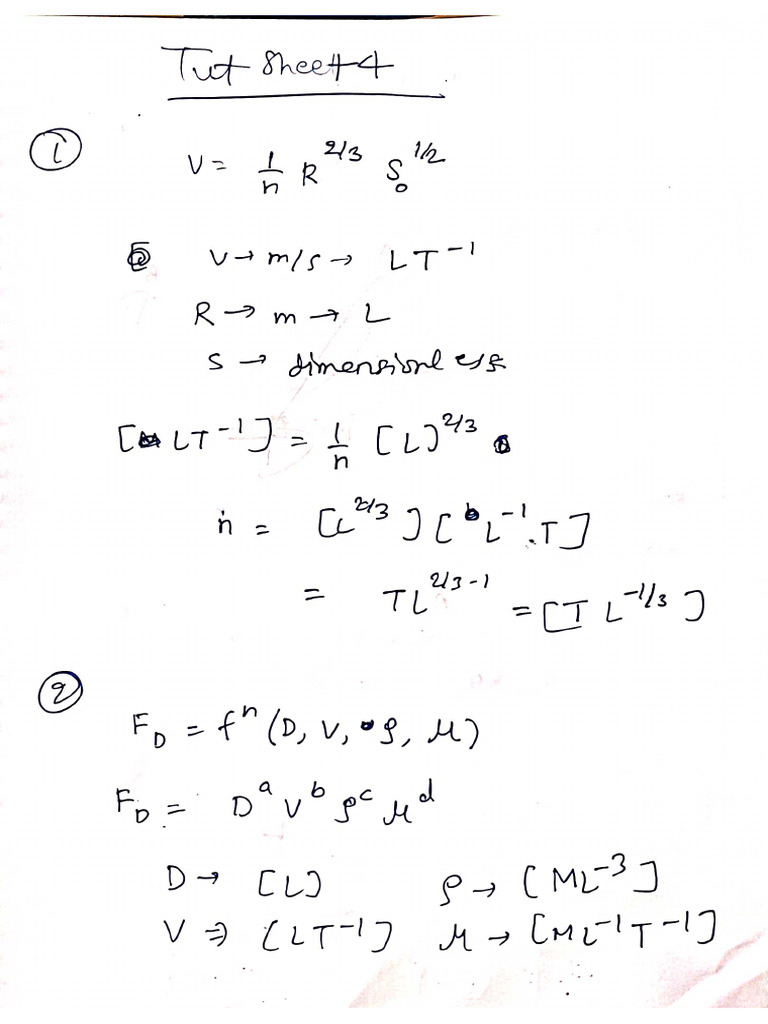 Tut Sheet 4
① V = 1/n R^2/3 S₀^1/2
V → m/s → LT^-1
R → m → L
S → dimensionless
[LT^-1] = 1/n [L]^2/3
n = [L^2/3] [L^-1.T]
= TL^2/3-1 = [T L^-1/3]
②
F_D = f^n (D, V, ρ, μ)
F_D = D^a V^b ρ^c μ^d
D → [L] ρ → [ML^-3]
V ⇒ [LT^-1] μ → [ML^-1T^-1]